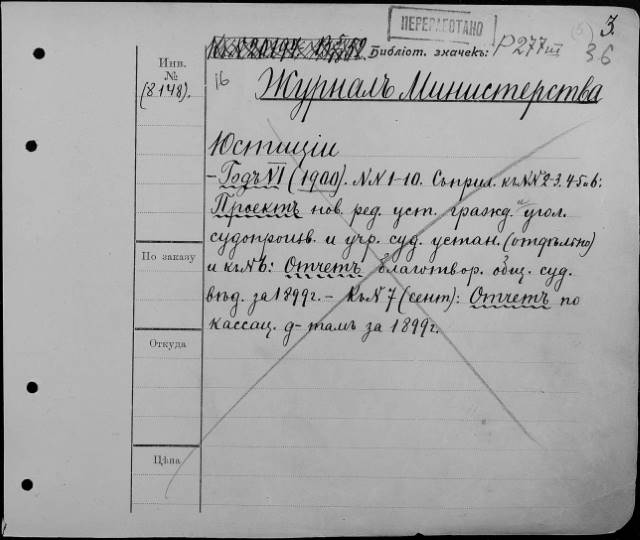 ПЕРЕРАБОТАНО
3.
Библіот. значекъ: P 277 III
(5) 36
Инв.
№
(8148).
16
Журналъ Министерства
Юстиціи
– Годъ VI (1900). NN 1-10. Съ прил. къ NN 2-3. 4. 5 и 6:
Проектъ нов. ред. уст. гражд. и угол.
судопроизв. и учр. суд. устан. (отдѣльно)
и къ N 6: Отчетъ благотвор. общ. суд.
вѣд. за 1899 г. – Къ N 7 (сент): Отчетъ по
кассац. д-тамъ за 1899 г.
По заказу
Откуда
Цѣна